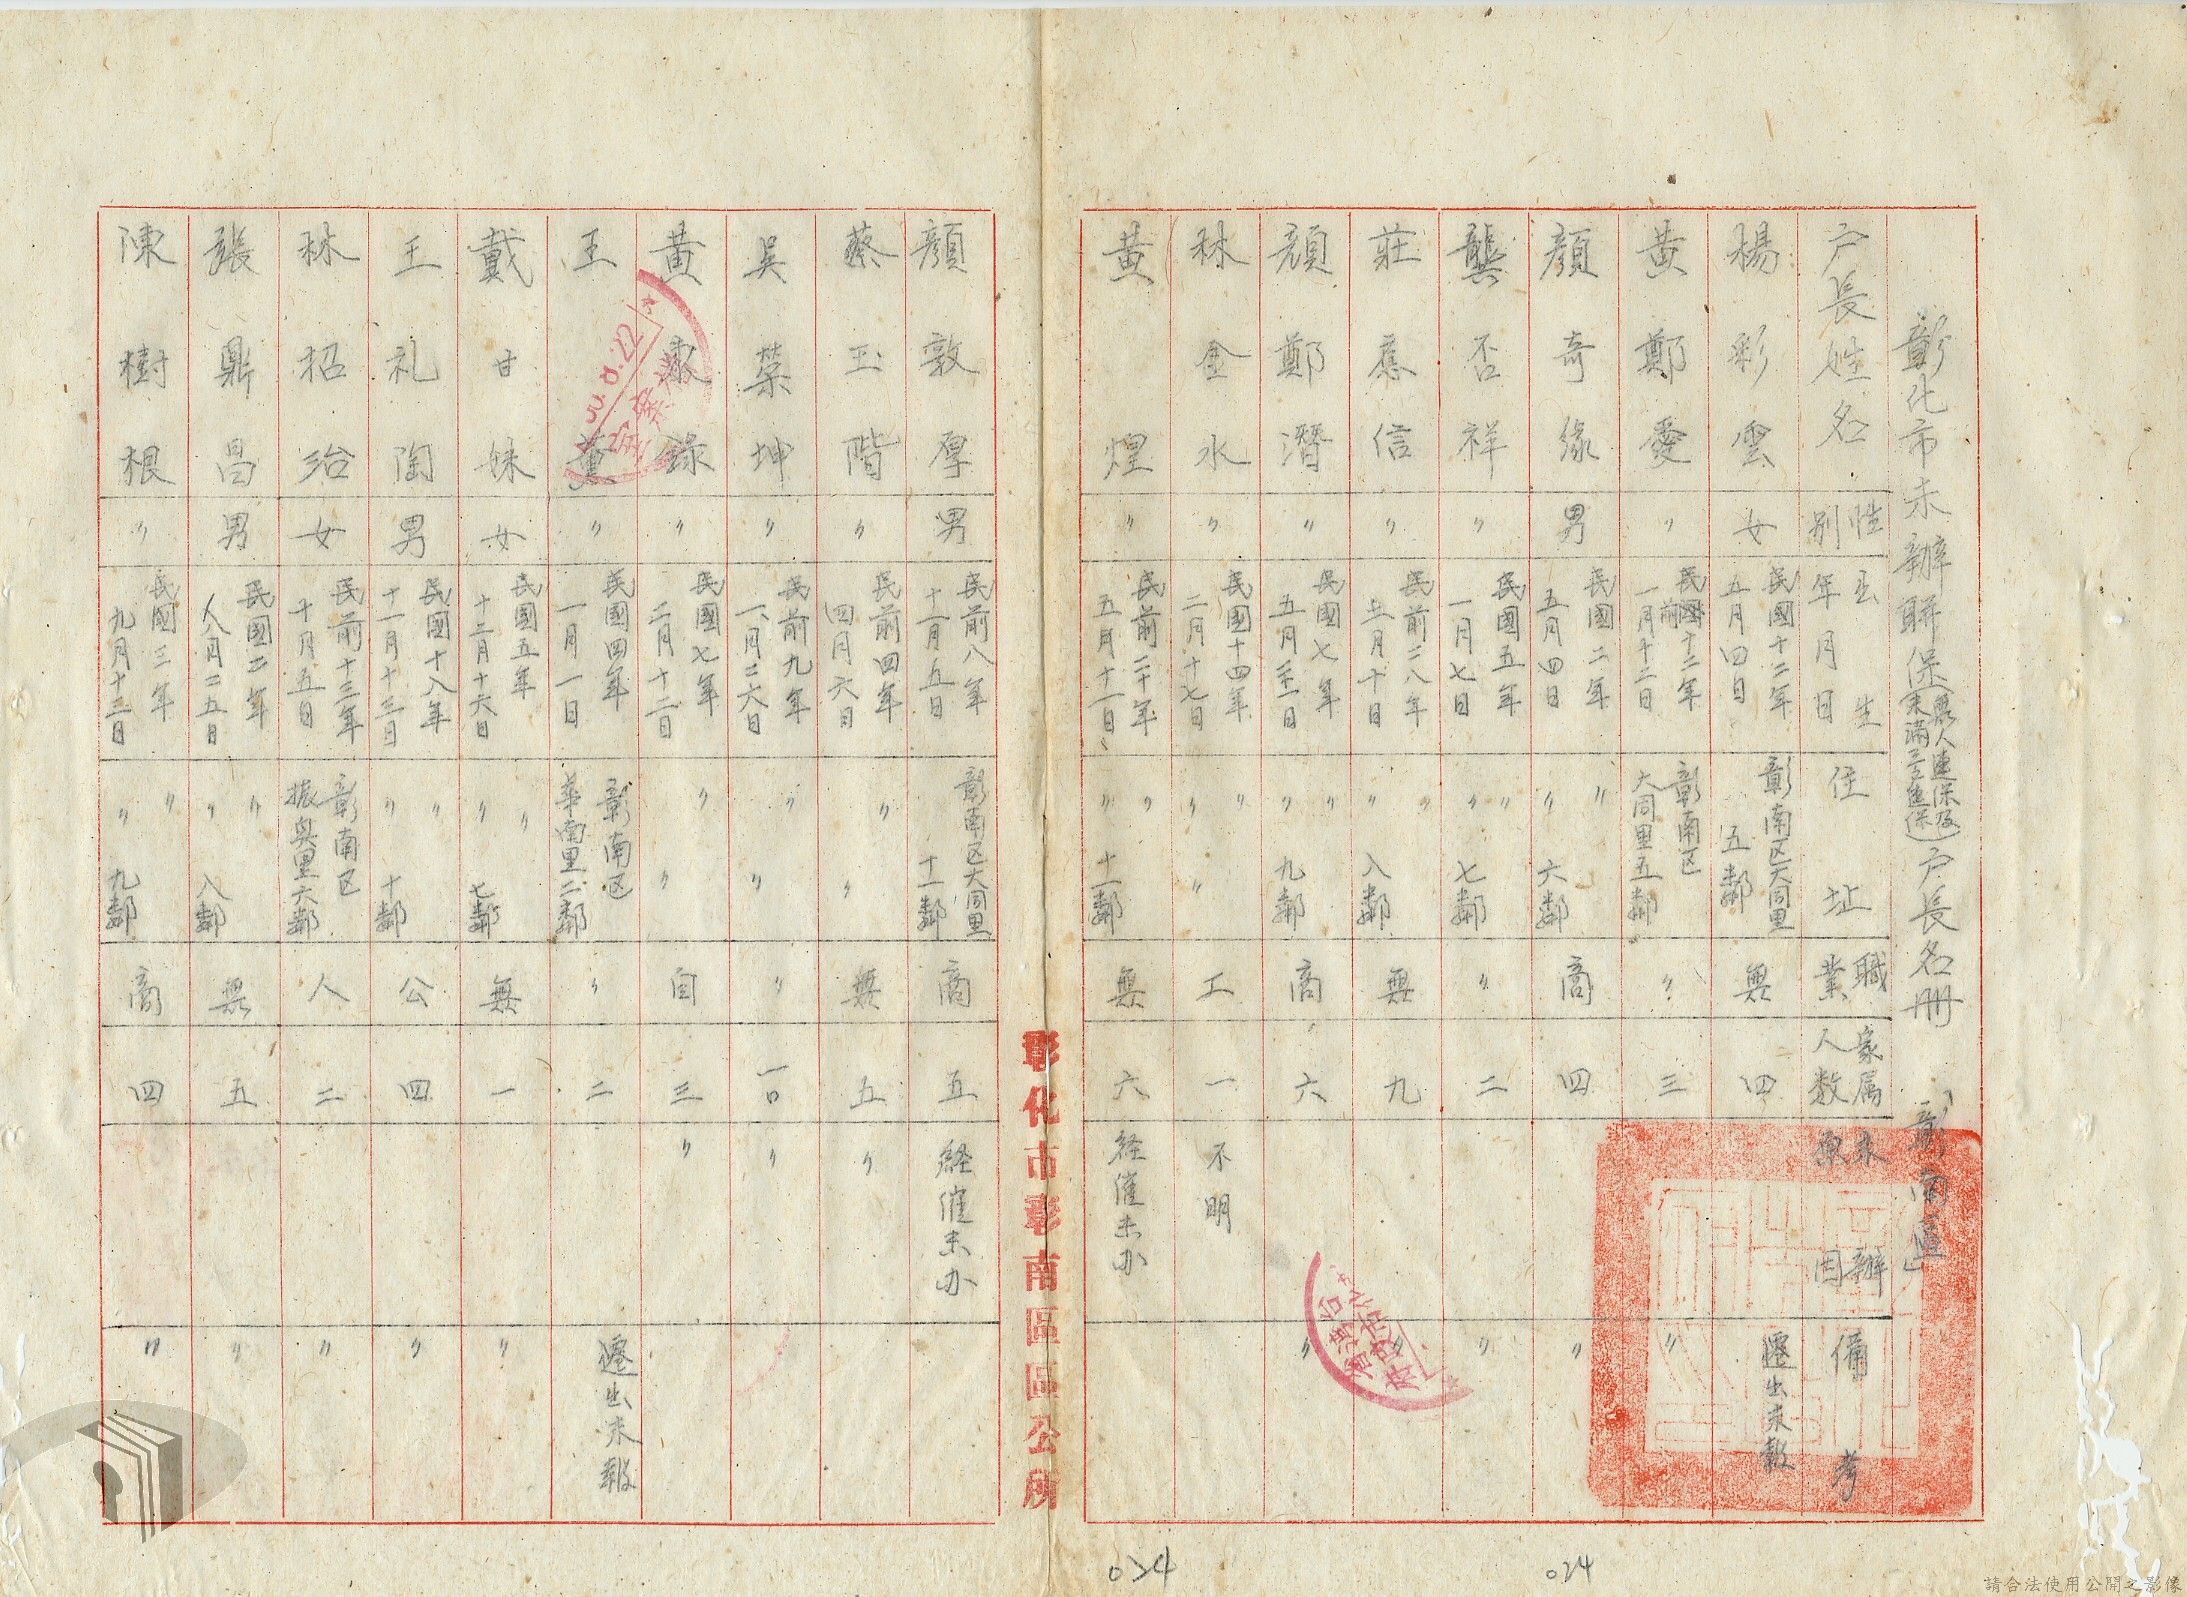 彰化市未辦聯保(無人連保及未滿三户連保)户長名册 「彰南區」
户長姓名 性別 出生年月日 住址 職業 家屬人数 未辦原因 備考
楊彩雲 女 民國十二年五月四日 彰南区大同里五鄰 無 四 遷出未報
黄鄭愛 〃 民前十二年一月十二日 彰南区大同里五鄰 〃 三 〃
顏奇緣 男 民國二年五月四日 〃 〃 六鄰 商 四 〃
龔否祥 〃 民國五年一月七日 〃 〃 七鄰 〃 二 〃
莊應信 〃 民前二八年三月十日 〃 〃 八鄰 無 九 〃
顏鄭潛 〃 民國七年五月二十一日 〃 〃 九鄰 商 六 〃
林金水 〃 民國十四年二月十七日 〃 〃 〃 工 一 不明
黄煌 〃 民前二十年五月十一日 〃 〃 十一鄰 無 六 経催未办
顏敦厚 男 民前八年十一月五日 彰南区大同里十一鄰 商 五 経催未办
蔡玉階 〃 民前四年四月六日 〃 〃 無 五 〃
吳榮坤 〃 民前九年八月二六日 〃 〃 〃 一口 〃
黄 錄 〃 民國七年二月十二日 〃 〃 自 三 〃
王 董 〃 民國四年一月一日 彰南区華南里二鄰 〃 二 遷出未報
戴甘妹 女 民國五年十二月十六日 〃 〃 七鄰 無 一 〃
王礼陶 男 民國十八年十一月十三日 〃 〃 十鄰 公 四 〃
林招治 女 民前十三年十月五日 彰南区振興里六鄰 人 二 〃
張鼎昌 男 民國二年八月二五日 〃 〃 八鄰 無 五 〃
陳樹根 〃 民國三年九月十三日 〃 〃 九鄰 商 四 〃
彰化市彰南區區公所
024
024
請合法使用公開之影像